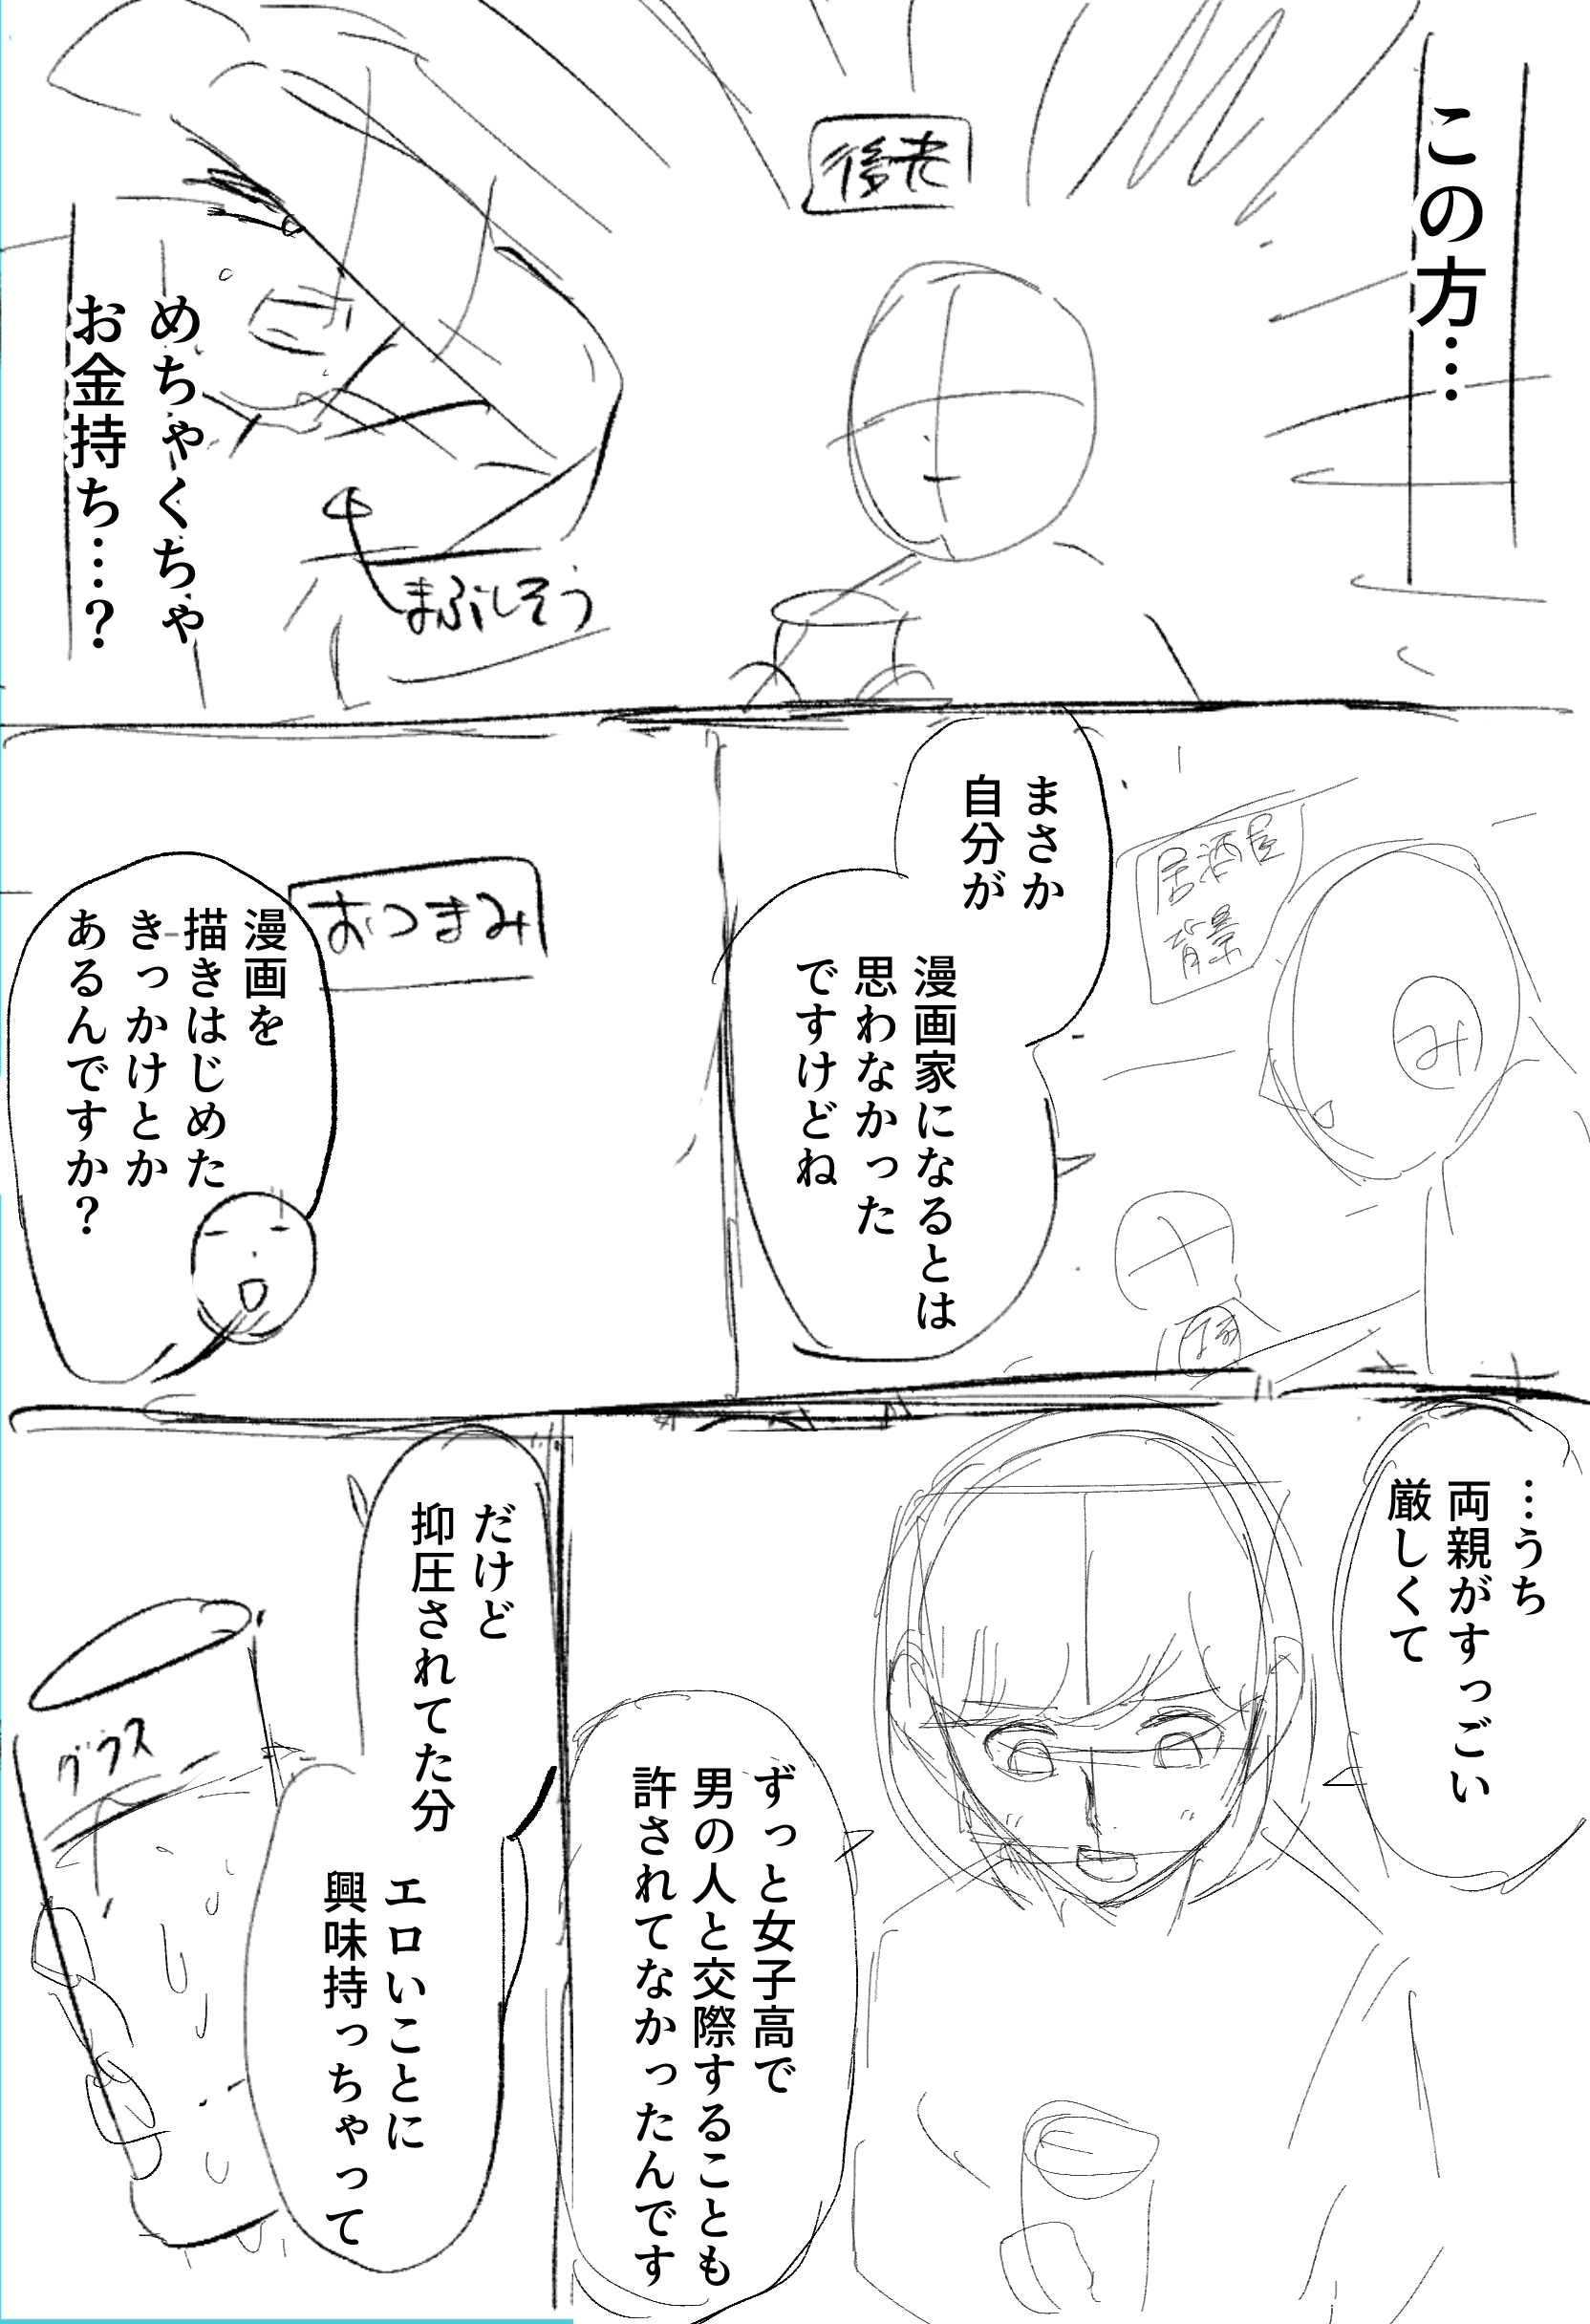 この方…
後光
めちゃくちゃ
お金持ち…?
まぶしそう
まさか
自分が
漫画家になるとは
思わなかった
ですけどね
居酒屋
背景
み
おつまみ
漫画を
描きはじめた
きっかけとか
あるんですか?
…うち
両親がすっごい
厳しくて
ずっと女子高で
男の人と交際することも
許されてなかったんです
だけど
抑圧されてた分
エロいことに
興味持っちゃって
グラス